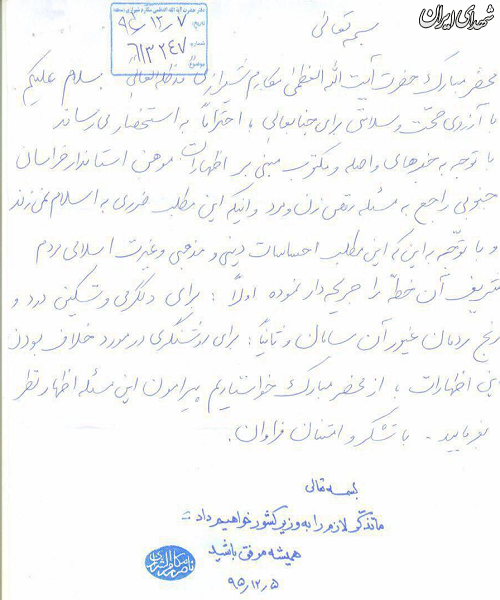 شهدای ایران
بسمه تعالی
دفتر حضرت آیة الله العظمی مکارم شیرازی
تاریخ: ۹۵/۱۲/۷
شماره: ۶۱۳۲۴۷
محضر مبارک حضرت آیت الله العظمی مکارم شیرازی مدظله العالی سلام علیکم
با آرزوی صحت و سلامتی برای جنابعالی، احتراماً به استحضار می‌رساند
با توجه به خبرهای واصله و مکتوب مبنی بر اظهارات موهن استاندار خراسان
جنوبی راجع به مسئله رقص زن و مرد و اینکه این مطلب ضرری به اسلام نمی‌زند
و با توجّه به این که این مطلب احساسات دینی و مذهبی و غیرت اسلامی مردم
شریف آن خطّه را جریحه‌دار نموده اولاً: برای دلگرمی و تسکین درد و
رنج مردمان غیور آن سامان و ثانیاً: برای روشنگری در مورد خلاف بودن
این اظهارات، از محضر مبارک خواستاریم پیرامون این مسئله اظهار نظر
بفرمایید. با تشکر و امتنان فراوان.
بسمه تعالی
ما تذکّر لازم را به وزیر کشور خواهیم داد
همیشه موفق باشید
۹۵،۱۲،۵
ناصر مکارم الشیرازی